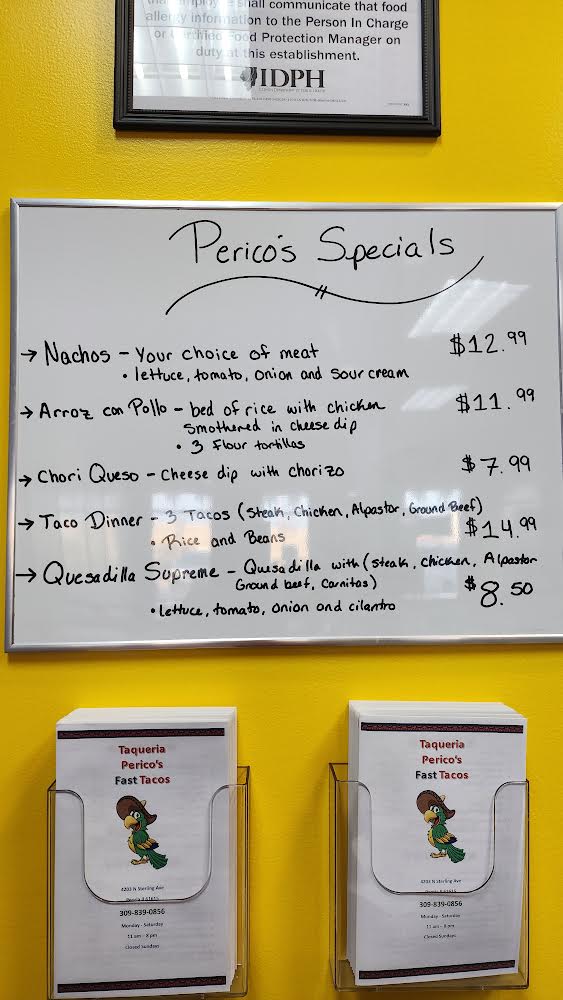 shall communicate that food
allergy information to the Person In Charge
or Certified Food Protection Manager on
duty at this establishment.
IDPH
Perico's Specials
→ Nachos - Your choice of meat $12.99
• lettuce, tomato, onion and sour cream
→ Arroz con Pollo - bed of rice with chicken $11.99
smothered in cheese dip
• 3 flour tortillas
→ Chori Queso - Cheese dip with chorizo $7.99
→ Taco Dinner - 3 Tacos (Steak, Chicken, Alpastor, Ground Beef)
• Rice and Beans $14.99
→ Quesadilla Supreme - Quesadilla with (steak, chicken, Alpastor
Ground beef, Carnitas) $8.50
• lettuce, tomato, onion and cilantro
Taqueria
Perico's
Fast Tacos
4203 N Sterling Ave
Peoria Il 61615
309-839-0856
Monday - Saturday
11 am - 8 pm
Closed Sundays
Taqueria
Perico's
Fast Tacos
4203 N Sterling Ave
Peoria Il 61615
309-839-0856
Monday - Saturday
11 am - 8 pm
Closed Sundays